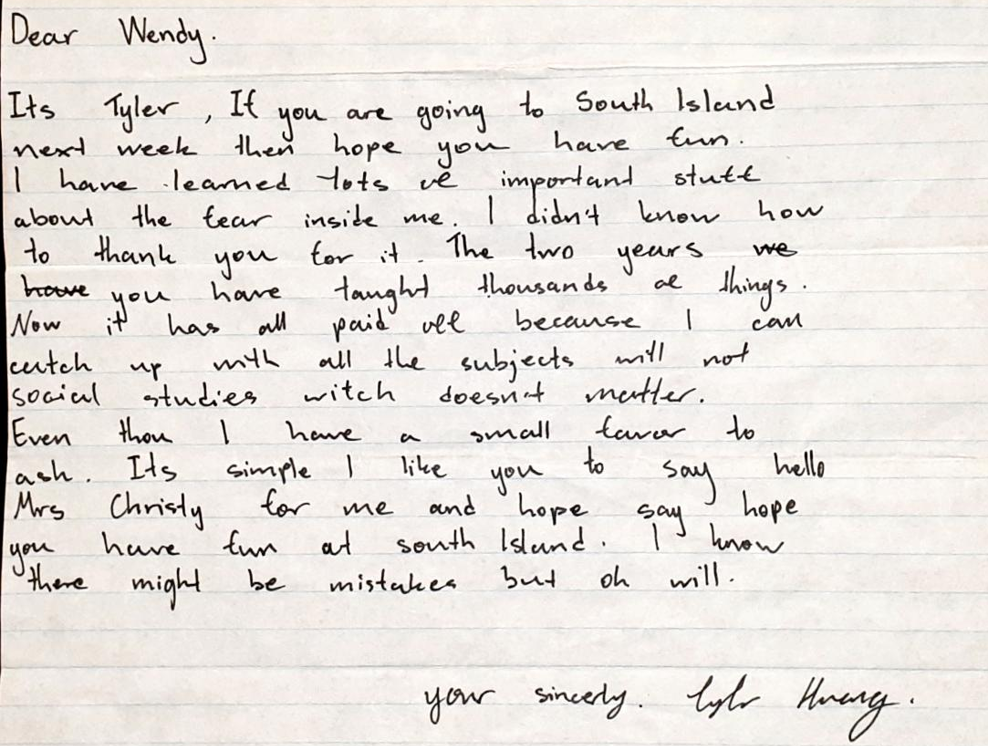 Dear Wendy.
Its Tyler, If you are going to South Island
next week then hope you have fun.
I have learned lots of important stuff
about the fear inside me. I didn't know how
to thank you for it. The two years we
have you have taught thousands of things.
Now it has all paid off because I can
catch up with all the subjects will not
social studies witch doesn't matter.
Even thou I have a small favor to
ask. Its simple I like you to say hello
Mrs Christy for me and hope say hope
you have fun at south Island. I know
there might be mistakes but oh will.
your sincerly. Tyler Huang.